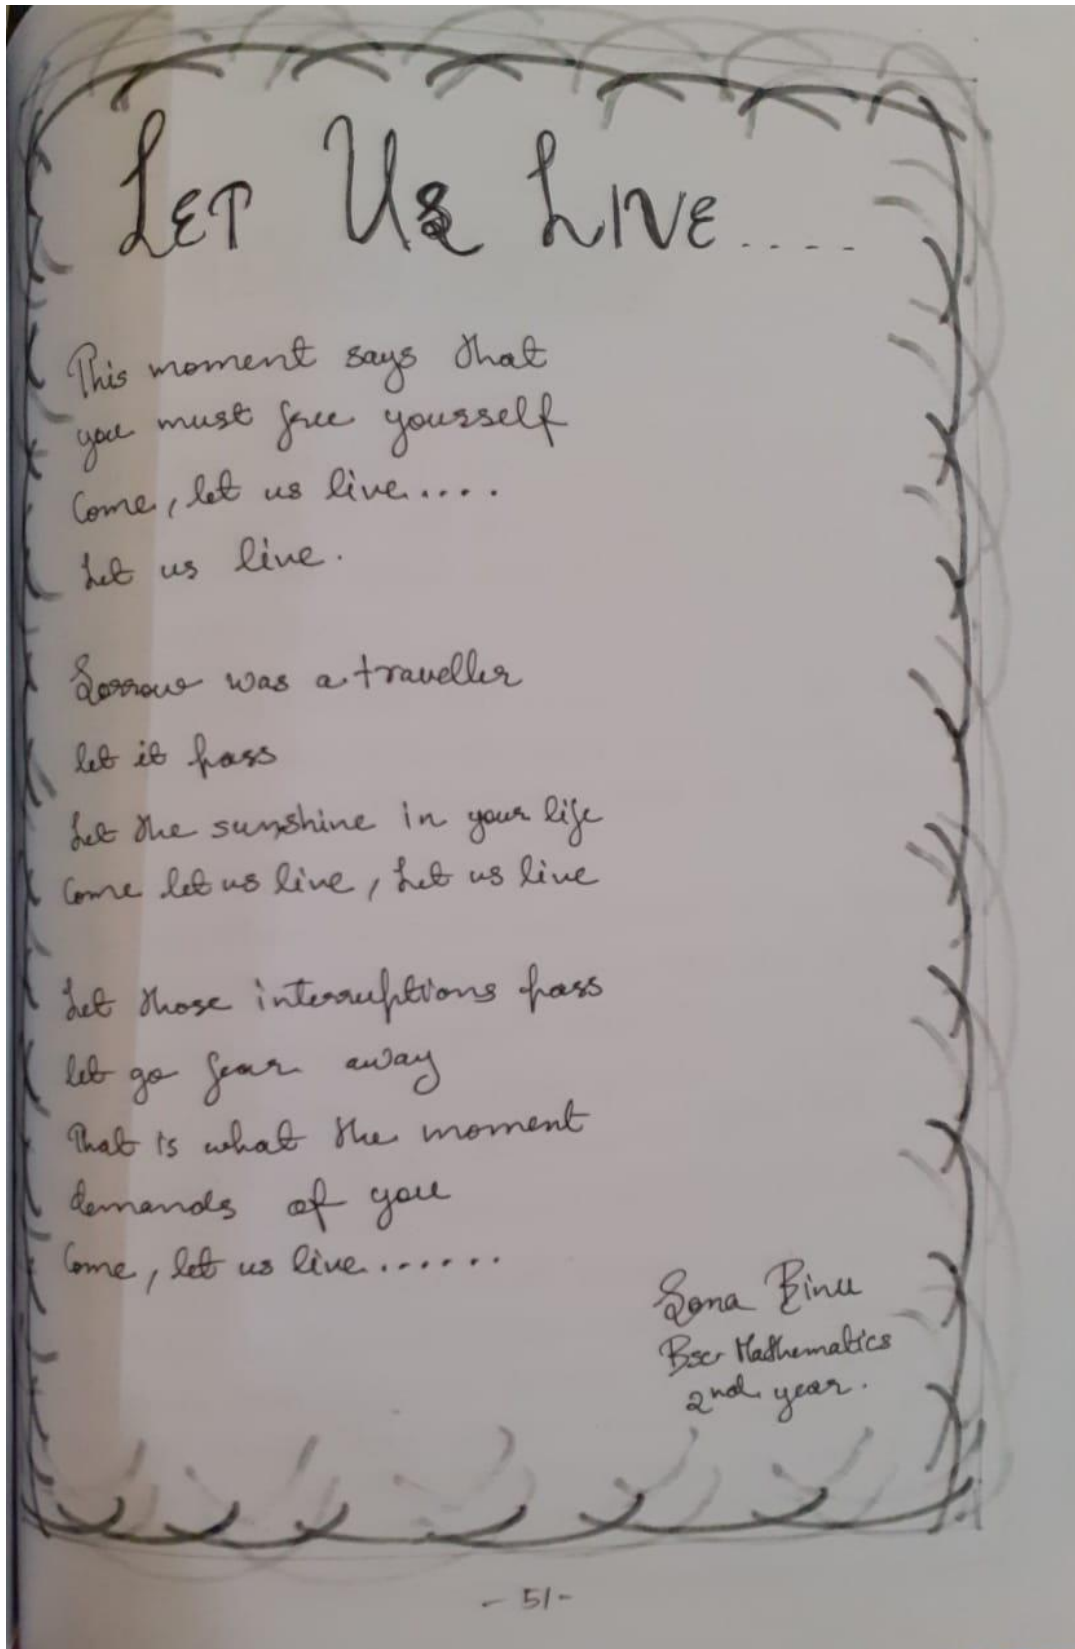 LET US LIVE....
This moment says that
you must free yourself
Come, let us live....
Let us live.
Sorrow was a traveller
let it pass
Let the sunshine in your life
Come let us live, Let us live
Let those interruptions pass
let go fear away
That is what the moment
demands of you
Come, let us live......
Sona Binu
Bsc Mathematics
2nd year.
- 51 -